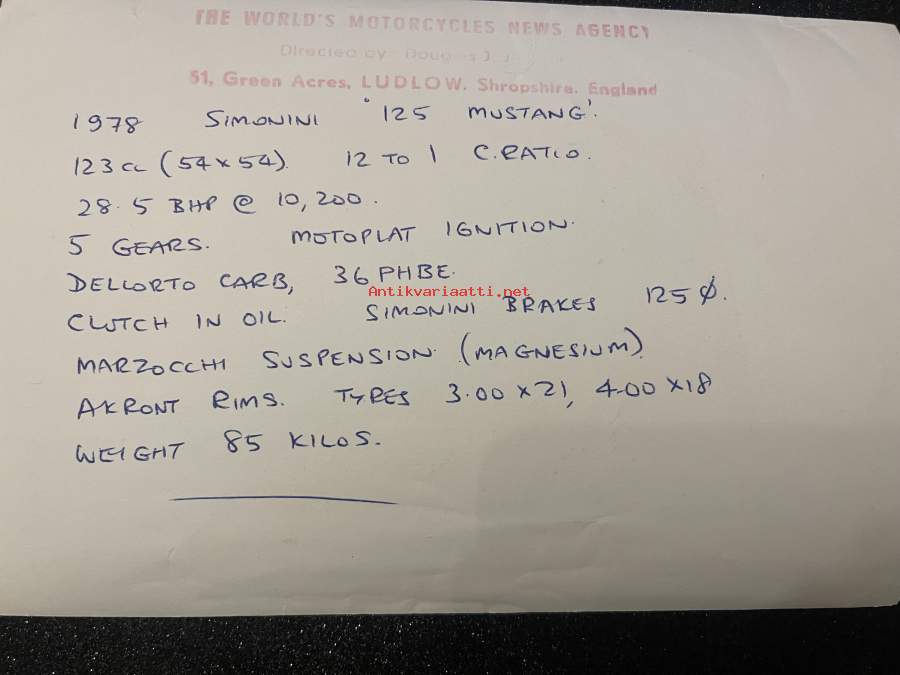 THE WORLD'S MOTORCYCLES NEWS AGENCY
Directed by
51, Green Acres, LUDLOW, Shropshire. England
1978 SIMONINI '125 MUSTANG'.
123cc (54 x 54). 12 TO 1 C.RATIO.
28.5 BHP @ 10,200.
5 GEARS. MOTOPLAT IGNITION.
DELLORTO CARB, 36 PHBE.
Antikvariaatti.net
CLUTCH IN OIL. SIMONINI BRAKES 125 Ø.
MARZOCCHI SUSPENSION (MAGNESIUM)
AKRONT RIMS. TYRES 3.00 x 21, 4.00 x 18
WEIGHT 85 KILOS.